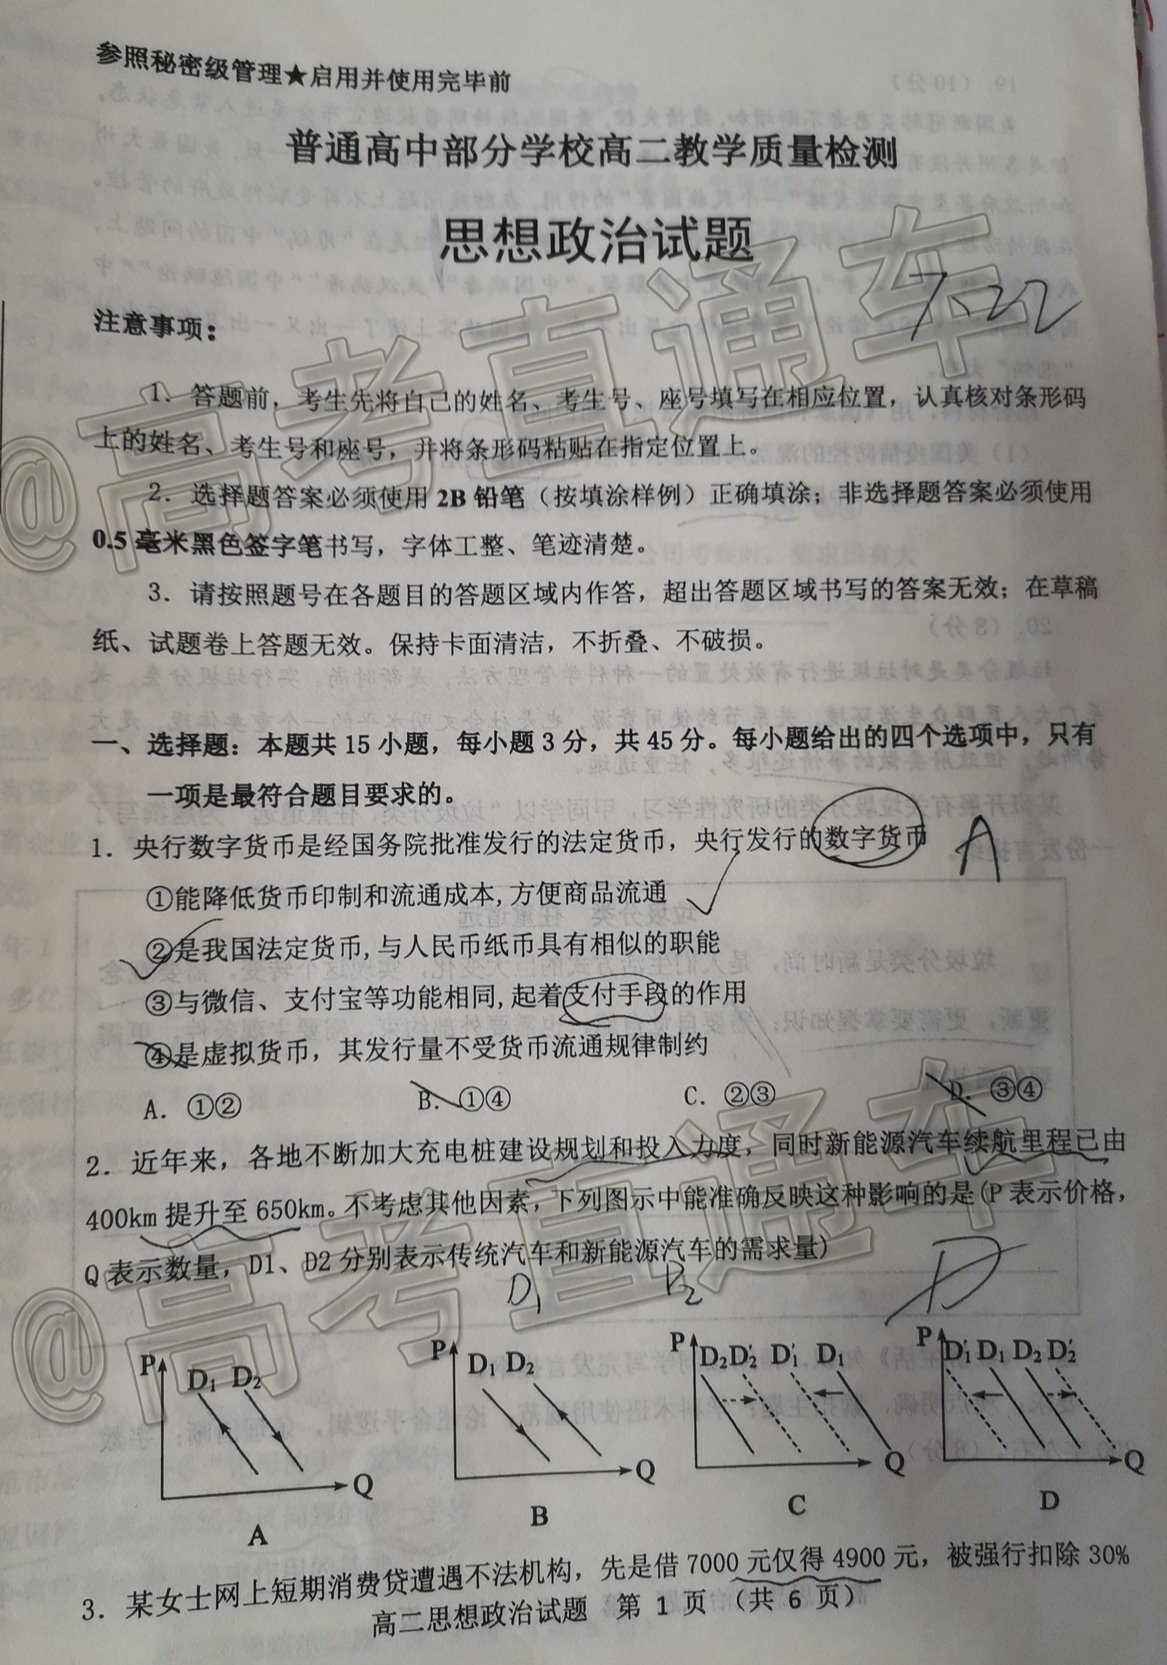 参照秘密级管理★启用并使用完毕前
普通高中部分学校高二教学质量检测
思想政治试题
7.22
注意事项：
1．答题前，考生先将自己的姓名、考生号、座号填写在相应位置，认真核对条形码
上的姓名、考生号和座号，并将条形码粘贴在指定位置上。
2．选择题答案必须使用 2B 铅笔（按填涂样例）正确填涂；非选择题答案必须使用
0.5 毫米黑色签字笔书写，字体工整、笔迹清楚。
3．请按照题号在各题目的答题区域内作答，超出答题区域书写的答案无效；在草稿
纸、试题卷上答题无效。保持卡面清洁，不折叠、不破损。
@高考直通车
一、选择题：本题共 15 小题，每小题 3 分，共 45 分。每小题给出的四个选项中，只有
一项是最符合题目要求的。
1．央行数字货币是经国务院批准发行的法定货币，央行发行的数字货币 A
①能降低货币印制和流通成本,方便商品流通
②是我国法定货币,与人民币纸币具有相似的职能
③与微信、支付宝等功能相同,起着支付手段的作用
④是虚拟货币，其发行量不受货币流通规律制约
A．①② B．①④ C．②③ D．③④
2．近年来，各地不断加大充电桩建设规划和投入力度，同时新能源汽车续航里程已由
400km 提升至 650km。不考虑其他因素，下列图示中能准确反映这种影响的是(P 表示价格，
Q 表示数量，D1、D2 分别表示传统汽车和新能源汽车的需求量)
D1 D2 D
@高考直通车
P D1 D2 Q
A
P D1 D2 Q
B
P D2 D2′ D1′ D1 Q
C
P D1′ D1 D2 D2′ Q
D
3．某女士网上短期消费贷遭遇不法机构，先是借 7000 元仅得 4900 元，被强行扣除 30%
高二思想政治试题 第 1 页 （共 6 页）